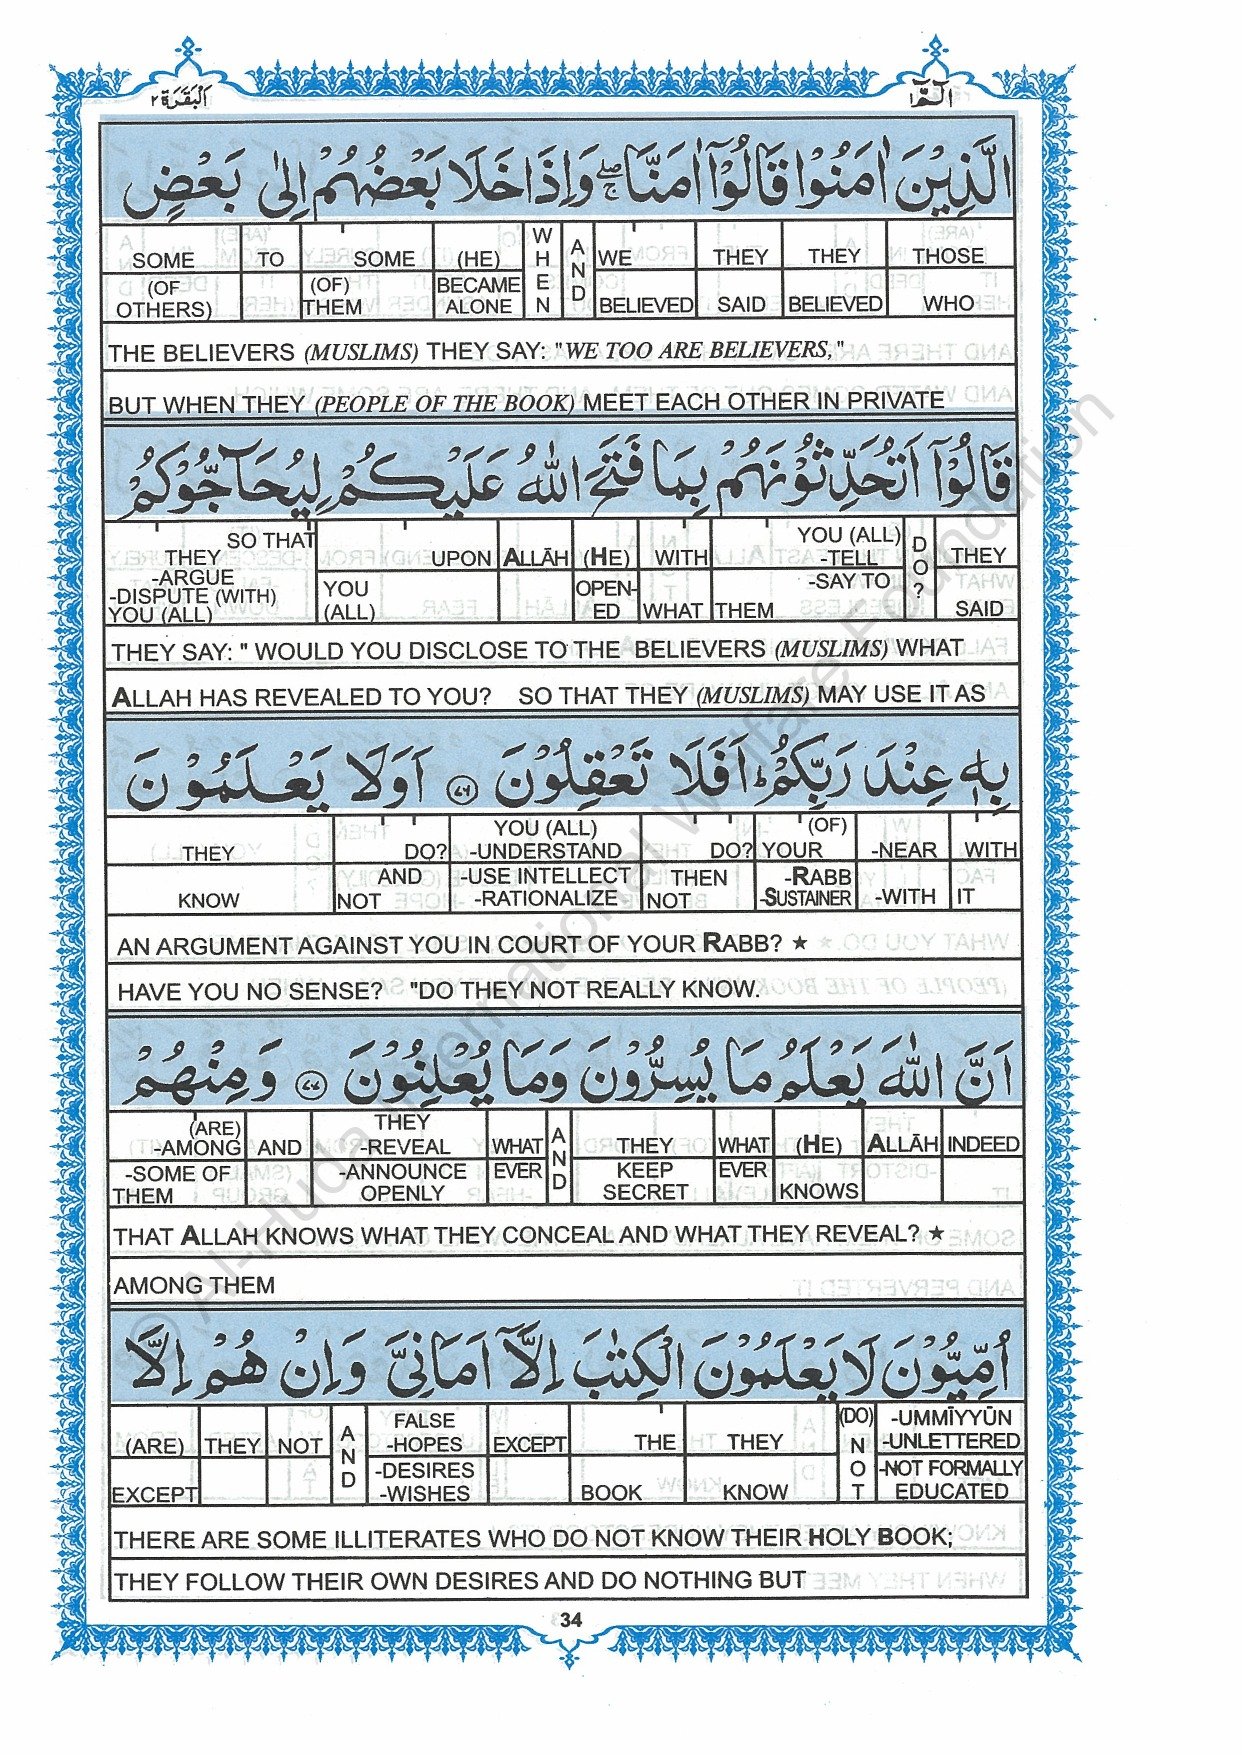 البقرة ٢
الٓمّٓ ١
الَّذِيْنَ اٰمَنُوْا قَالُوْٓا اٰمَنَّا ۖۚ وَاِذَا خَلَا بَعْضُهُمْ اِلٰى بَعْضٍ
SOME TO SOME (HE) WHEN AND WE THEY THEY THOSE
(OF OTHERS) (OF) THEM BECAME ALONE BELIEVED SAID BELIEVED WHO
THE BELIEVERS (MUSLIMS) THEY SAY: "WE TOO ARE BELIEVERS,"
BUT WHEN THEY (PEOPLE OF THE BOOK) MEET EACH OTHER IN PRIVATE
قَالُوْٓا اَتُحَدِّثُوْنَهُمْ بِمَا فَتَحَ اللّٰهُ عَلَيْكُمْ لِيُحَآجُّوْكُمْ
SO THAT THEY UPON ALLĀH (HE) WITH YOU (ALL) -TELL DO? THEY
-ARGUE -DISPUTE (WITH) YOU (ALL) YOU (ALL) OPEN-ED WHAT THEM -SAY TO SAID
THEY SAY: " WOULD YOU DISCLOSE TO THE BELIEVERS (MUSLIMS) WHAT
ALLAH HAS REVEALED TO YOU? SO THAT THEY (MUSLIMS) MAY USE IT AS
بِهٖ عِنْدَ رَبِّكُمْ ؕ اَفَلَا تَعْقِلُوْنَ ﴿۷۶﴾ اَوَلَا يَعْلَمُوْنَ
THEY DO? YOU (ALL) -UNDERSTAND DO? (OF) YOUR -NEAR WITH
KNOW AND NOT -USE INTELLECT -RATIONALIZE THEN NOT -RABB -SUSTAINER -WITH IT
AN ARGUMENT AGAINST YOU IN COURT OF YOUR RABB? ★
HAVE YOU NO SENSE? "DO THEY NOT REALLY KNOW.
اَنَّ اللّٰهَ يَعْلَمُ مَا يُسِرُّوْنَ وَمَا يُعْلِنُوْنَ ﴿۷۷﴾ وَمِنْهُمْ
(ARE) -AMONG AND THEY -REVEAL WHAT AND THEY WHAT (HE) ALLĀH INDEED
-SOME OF THEM -ANNOUNCE OPENLY EVER KEEP SECRET EVER KNOWS
THAT ALLAH KNOWS WHAT THEY CONCEAL AND WHAT THEY REVEAL? ★
AMONG THEM
اُمِّيُّوْنَ لَا يَعْلَمُوْنَ الْكِتٰبَ اِلَّآ اَمَانِىَّ وَاِنْ هُمْ اِلَّا
(ARE) THEY NOT AND FALSE -HOPES EXCEPT THE THEY (DO) NOT -UMMĪYYŪN -UNLETTERED
EXCEPT -DESIRES -WISHES BOOK KNOW -NOT FORMALLY EDUCATED
THERE ARE SOME ILLITERATES WHO DO NOT KNOW THEIR HOLY BOOK;
THEY FOLLOW THEIR OWN DESIRES AND DO NOTHING BUT
34
© Al-Huda International Welfare Foundation